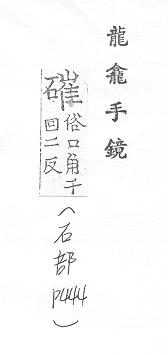 龍龕手鏡
磪俗口角千
回二反
(石部P444)